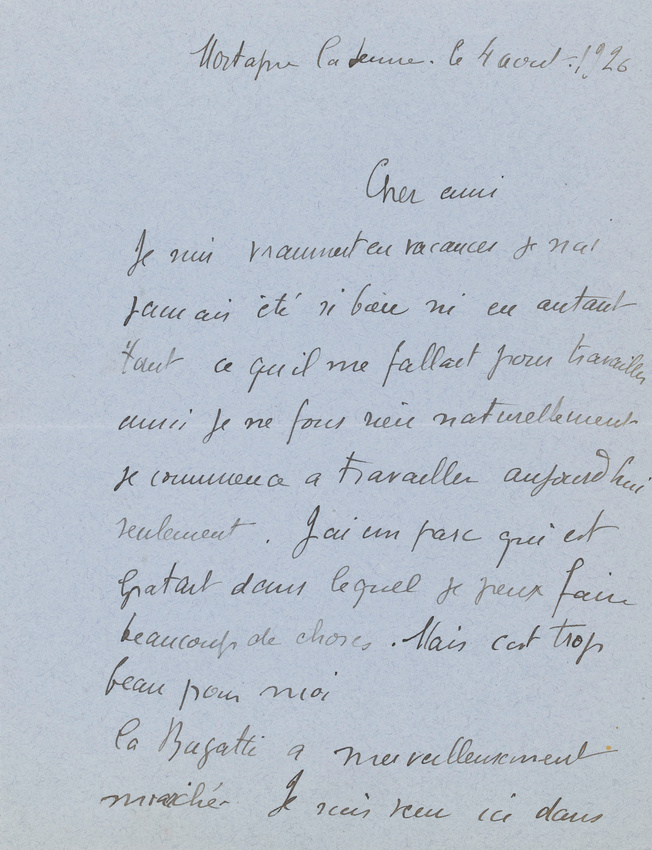 Mortagne la Jeune. le 4 aout. 1926
Cher ami
Je suis vraiment en vacances je n'ai
jamais été si bien ni eu autant
tout ce qu'il me fallait pour travailler
aussi je ne fous rien naturellement
je commence a travailler aujourd'hui
seulement. J'ai un parc qui est
épatant dans lequel je peux faire
beaucoup de choses. Mais c'est trop
beau pour moi
la Bugatti a merveilleusement
marché. Je suis venu ici dans